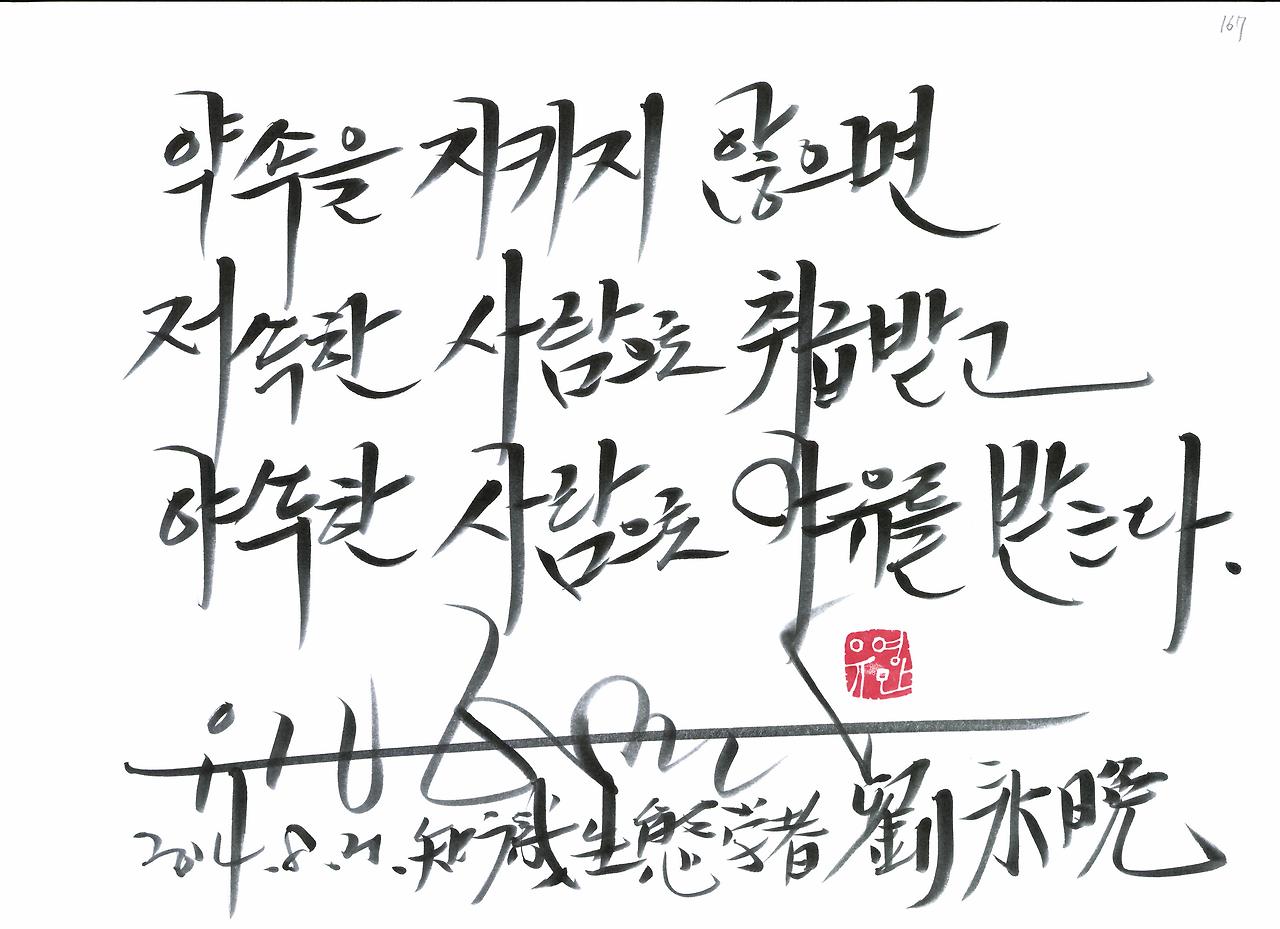 167
약속을 지키지 않으면
저속한 사람으로 취급받고
야속한 사람으로 야유를 받는다.
유영만
2014.8.21. 知識生態学者 劉永晩